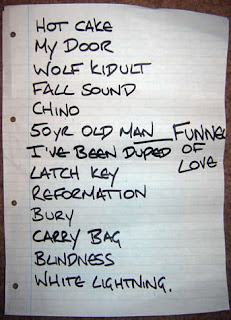 HOT CAKE
MY DOOR
WOLF KIDULT
FALL SOUND
CHINO
50 YR OLD MAN — FUNNEL OF LOVE
I'VE BEEN DUPED
LATCH KEY
REFORMATION
BURY
CARRY BAG
BLINDNESS
WHITE LIGHTNING.